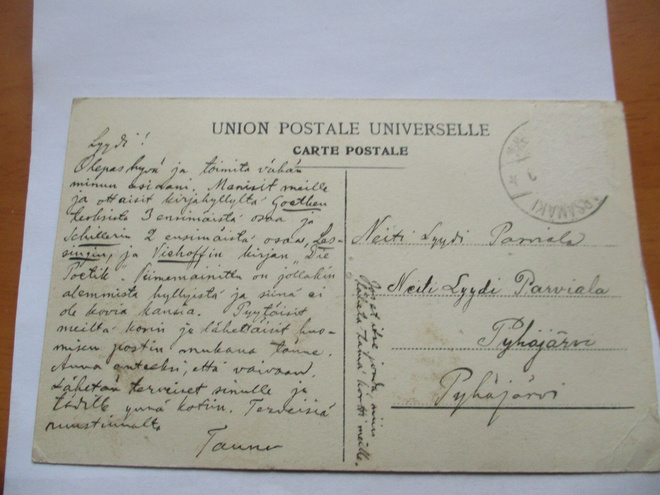 UNION POSTALE UNIVERSELLE
CARTE POSTALE
Lyydi!
Olepas hyvä ja toimita vähän
minun asioani. Menisit meille
ja ottaisit kirjahyllyltä Goethen
teoksista 3 ensimäistä osaa ja
Schillerin 2 ensimäistä osaa, Les-
singin, ja Viehoffin kirjan "Die
Poetik". Viimemainittu on jollakin
alemmista hyllyistä ja siinä ei
ole kovia kansia. Pyytäisit
meiltä korin ja lähettäisit huo-
misen postin mukana tänne.
Anna anteeksi, että vaivaan.
Lähetän terveiset sinulle ja
tädille ynnä kotiin. Terveisiä
Tauno
Jos et itse jouda, niin
lähetä tämä kortti meille.
Neiti Lyydi Parviala
Neiti Lyydi Parviala
Pyhäjärvi
Pyhäjärvi